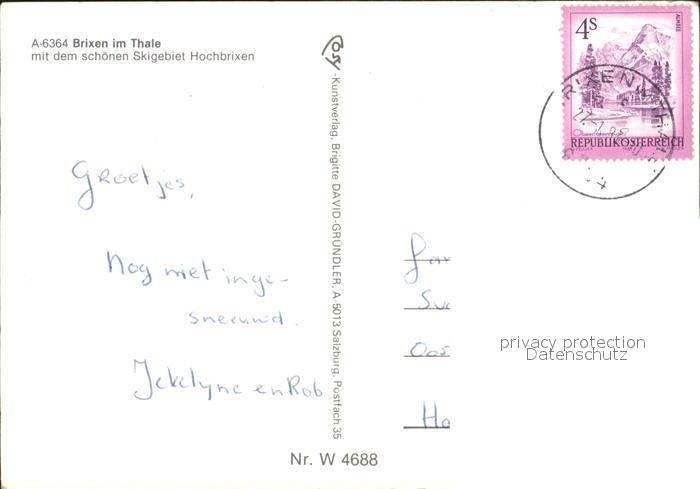 A-6364 Brixen im Thale
mit dem schönen Skigebiet Hochbrixen
Groetjes,
Nog niet inge-
sneeuwd.
Jekelyne en Rob
Cosy-Kunstverlag, Brigitte DAVID-GRÜNDLER, A-5013 Salzburg, Postfach 35
Nr. W 4688
4s
ALMSEE
REPUBLIK ÖSTERREICH
BRIXEN
Oos
Ho
privacy protection
Datenschutz